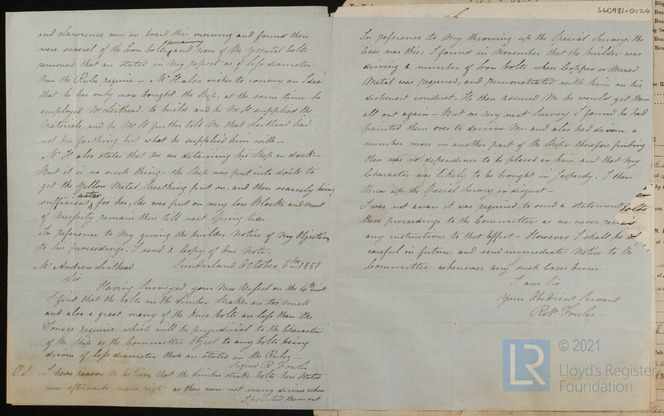 and Lawrence were on board this morning and found there
were several of the Iron bolts and none of the Y metal bolts
remaining
removed that are stated in my report as of less diameter
than the Rules require - Mr Hales wishes to convey an Idea
that he has only now bought the Ship, at the same time he
employed Mr Leithead to build and he Mr H supplied the
Materials, and he Mr H further told Me that Leithead had
not one farthing but what he supplied him with -
Mr Hales states that we are detaining his Ship in dock -
But it is no such thing. the Ship was put into dock to
get the Yellow Metal Sheathing put on, and there scarcely being
sufficient water for her, she was put on very low Blocks and must
of Necessity remain there till next Spring tides
In reference to My giving the builder Notice of My Objections
to his proceedings. I send a Copy of One Note.
Mr Andrew Leithead
Sunderland October 6th 1851
Sir
Having Surveyed your New Vessel on the 4th Inst
I find that the bolts in the Limber Strakes are too small
and also a great many of the Knee bolts are less than the
Tonage require, which will be prejudicial to the Character
of the Ship as the Committee Object to any bolts being
driven of less diameter than are stated in the Rules -
Signed R. Fowler
P.S. I have reason to believe that the Limber strake bolts here stated
were afterwards made right as there were not many driven when
I pointed them out
S60981-0124
In reference to My throwing up the Special Survey the
Case was this, I found in November that the builder was
driving a number of Iron bolts where Copper or Mixed
Metal was required, and remonstrated with him on his
dishonest conduct. He then assured Me he would get them
all out again - But on my next Survey I found he had
painted them over to deceive Me, and also had driven a
number more in another part of the Ship - therefore finding
there was no dependence to be placed in him and that my
Character was likely to be bought in Jeopardy. I then
threw up the Special Survey in disgust -
I was not aware it was required to send a statement of
those proceedings to the Committee as we never received
any instructions to that Effect - However I shall be
careful in future and send immediate Notice to the
Committee whenever any such Cases occur.
I am Sir
Your Obedient Servant
Robt Fowler
© 2021
LR
Lloyd's Register
Foundation